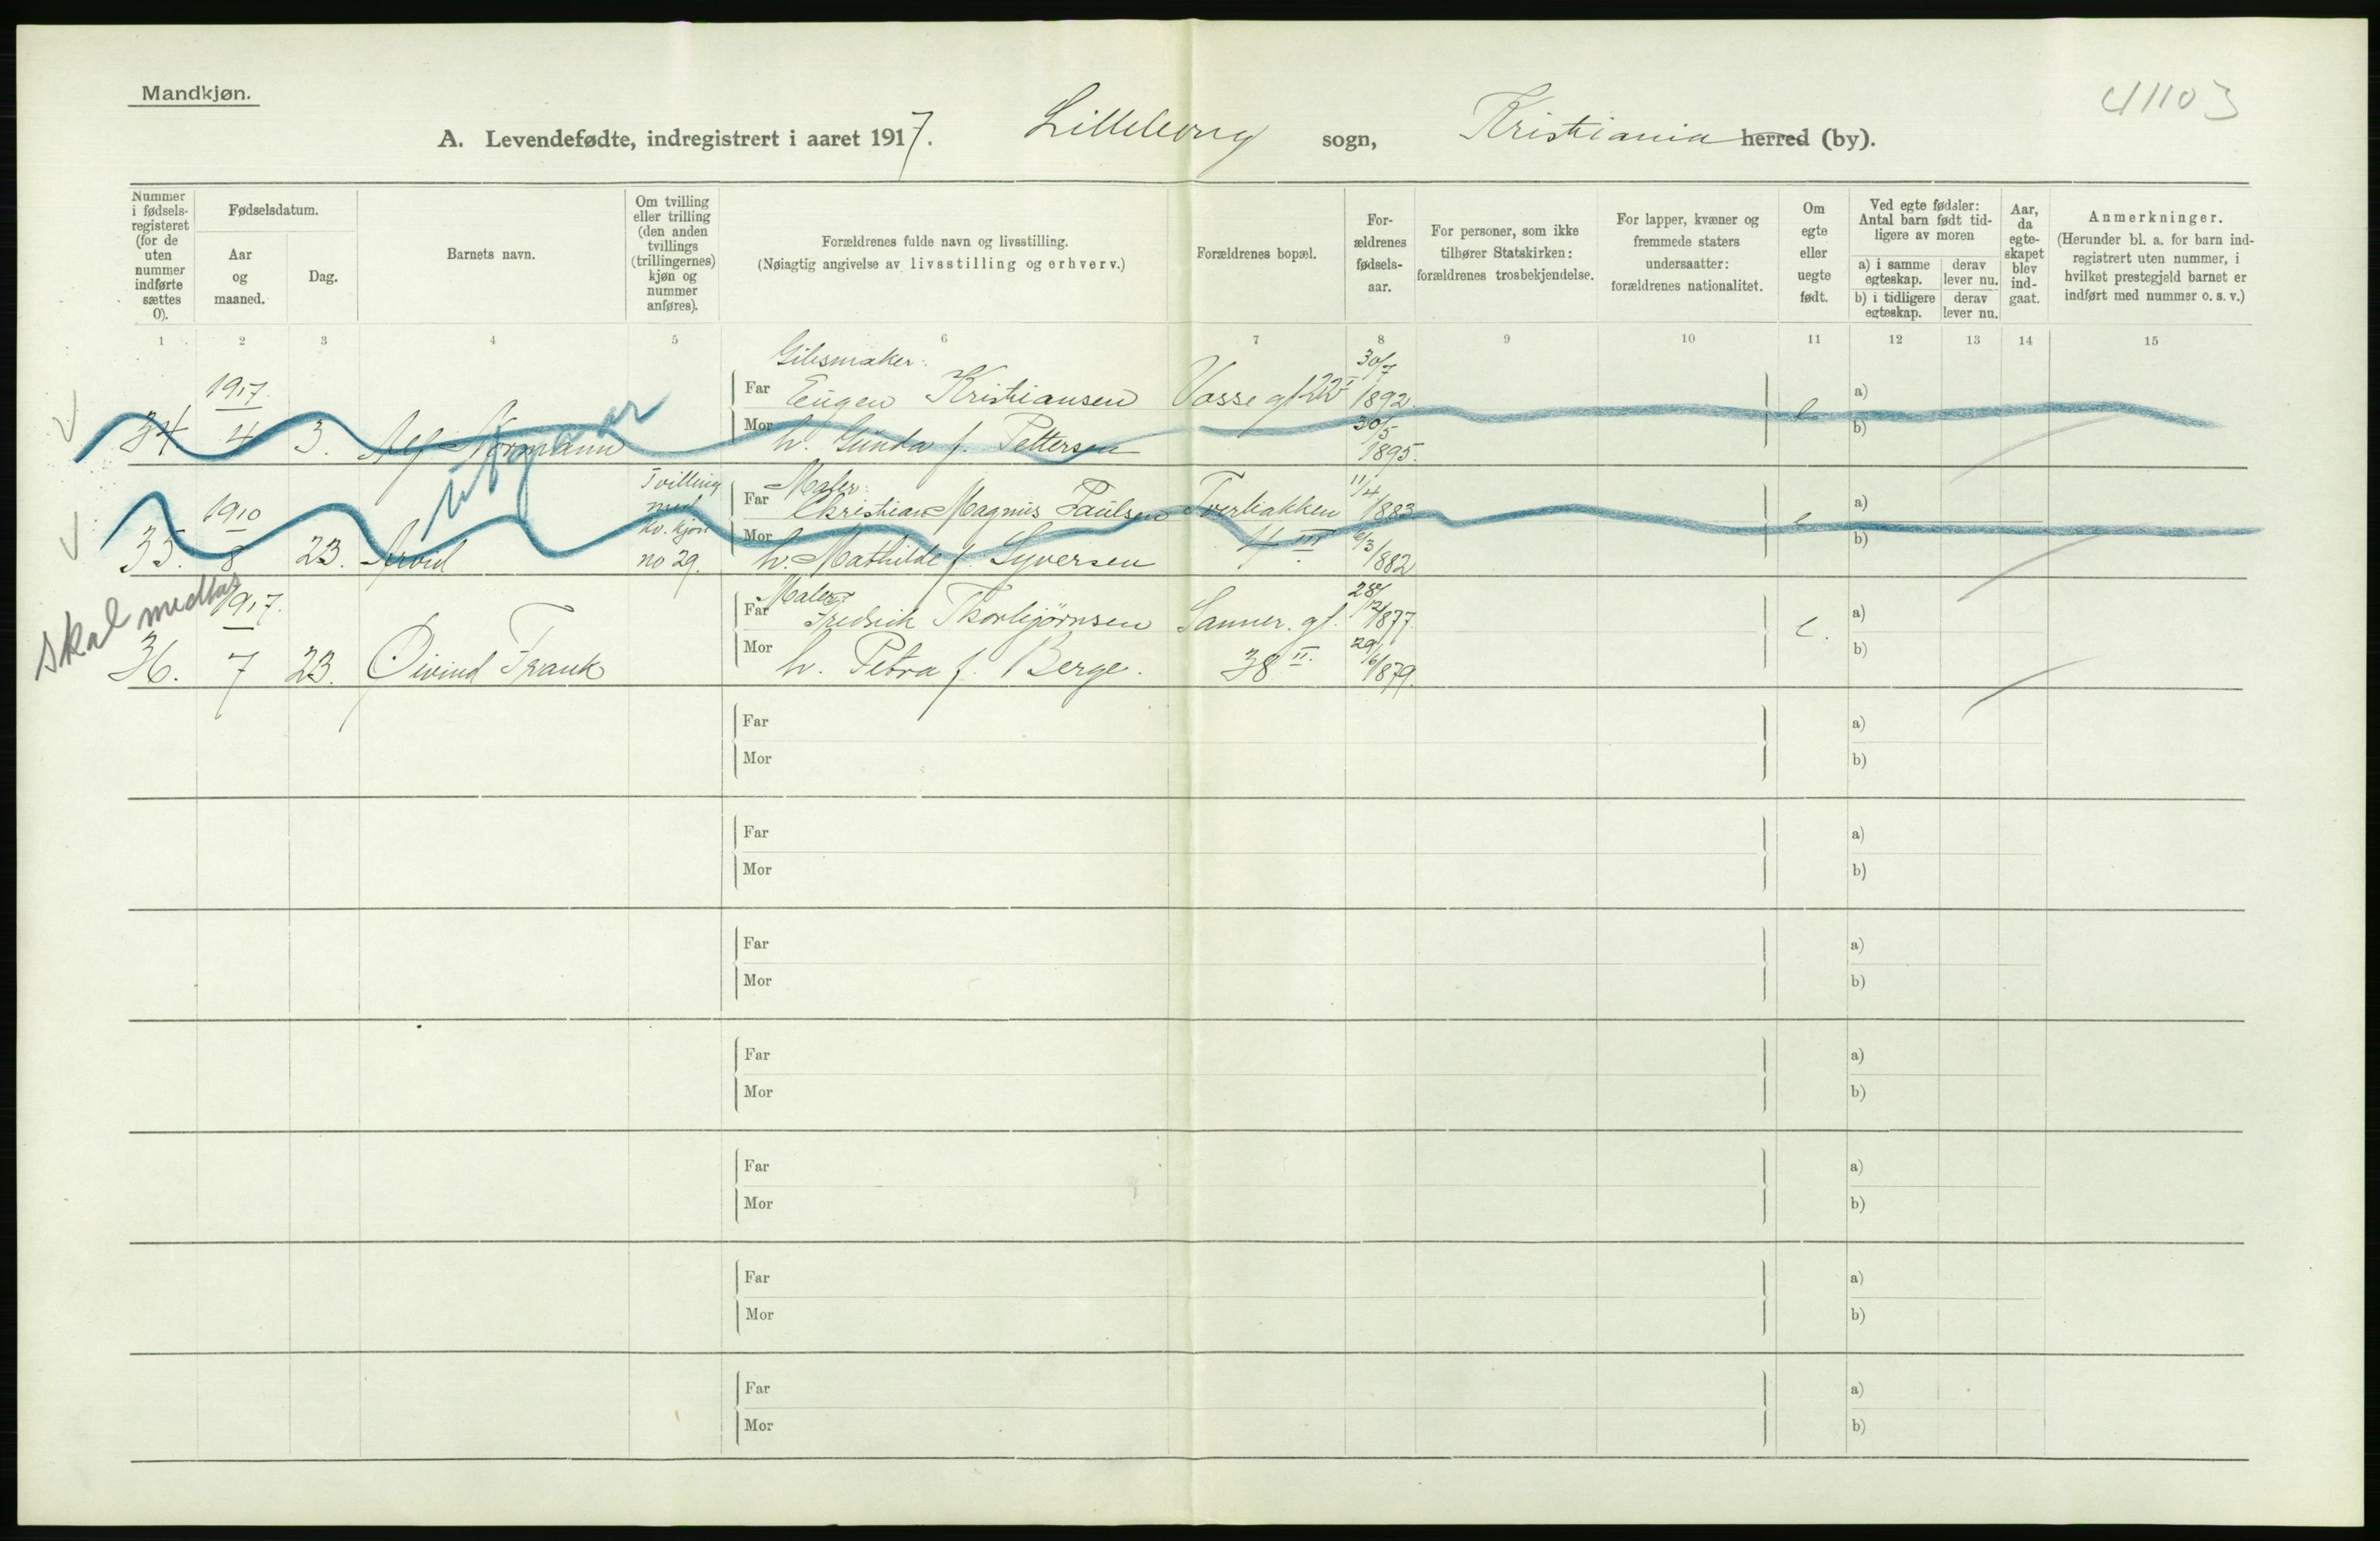 Mandkjøn.
41103
A. Levendefødte, indregistrert i aaret 1917. Lilleborg sogn, Kristiania herred (by).
Nummer i fødsels-registeret (for de uten nummer indførte sættes 0).
Fødselsdatum.
Aar og maaned.
Dag.
Barnets navn.
Om tvilling eller trilling (den anden tvillings (trillingernes) kjøn og nummer anføres).
Forældrenes fulde navn og livsstilling.
(Nøiagtig angivelse av livsstilling og erhverv.)
Forældrenes bopæl.
For-ældrenes fødsels-aar.
For personer, som ikke tilhører Statskirken: forældrenes trosbekjendelse.
For lapper, kvæner og fremmede staters undersaatter: forældrenes nationalitet.
Om egte eller uegte født.
Ved egte fødsler: Antal barn født tid-ligere av moren
a) i samme egteskap.
derav lever nu.
b) i tidligere egteskap.
derav lever nu.
Aar, da egte-skapet blev ind-gaat.
Anmerkninger.
(Herunder bl. a. for barn ind-registrert uten nummer, i hvilket prestegjeld barnet er indført med nummer o. s. v.)
1 2 3 4 5 6 7 8 9 10 11 12 13 14 15
Gibsmaker. 30/7
1917. Far Eugen Kristiansen Vosse gt 22 I 1892. a)
34. 4 3. Alf Normann Mor h. Gunda f. Pettersen 30/5 1895. e b)
utgaar
Tvilling Maler. 11/4
1910 med Far Christian Magnus Paulsen Tverbakken 1883 a)
kv. kjøn Mor e b)
35. 8 23. Arvid no 29. h. Mathilde f. Syversen 4 III. 6/3 1882
skal medtas
Maler 28/12
1917. Far Fredrik Thorbjørnsen Sanner. gt. 1877. a)
36. 7 23. Øivind Frank Mor h. Petra f. Berge. 38 II. 29/6 1879. e. b)
Far a)
Mor b)
Far a)
Mor b)
Far a)
Mor b)
Far a)
Mor b)
Far a)
Mor b)
Far a)
Mor b)
Far a)
Mor b)